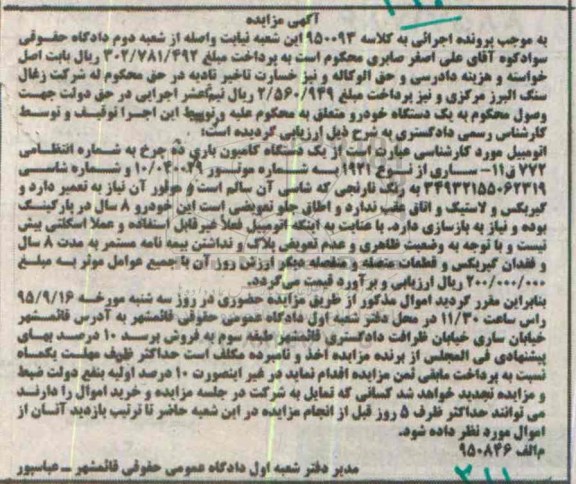 آگهی مزایده
به موجب پرونده اجرائی به کلاسه ۹۵۰۰۹۳ این شعبه نیابت واصله از شعبه دوم دادگاه حقوقی
سوادکوه آقای علی اصغر صابری محکوم است به پرداخت مبلغ ۳۰۲/۷۸۱/۴۹۲ ریال بابت اصل
خواسته و هزینه دادرسی و حق الوکاله و نیز خسارت تاخیر تادیه در حق محکوم له شرکت زغال
سنگ البرز مرکزی و نیز پرداخت مبلغ ۲/۵۶۰/۹۴۹ ریال نیمعشر اجرایی در حق دولت جهت
وصول محکوم به یک دستگاه خودرو متعلق به محکوم علیه توسط این اجرا توقیف و توسط
کارشناس رسمی دادگستری به شرح ذیل ارزیابی گردیده است:
اتومبیل مورد کارشناسی عبارت است از یک دستگاه کامیون باری ده چرخ به شماره انتظامی
۷۷۲ ق۱۱- ساری از نوع ۱۹۲۱ به شماره موتور ۱۰/۰۴۰۰۲۹ و شماره شاسی
۳۴۹۳۲۱۵۵۰۶۲۳۱۹ به رنگ نارنجی که شاسی آن سالم است و موتور آن نیاز به تعمیر دارد و
گیربکس و لاستیک و اتاق عقب ندارد و اطاق جلو تعویضی است این خودرو ۸ سال در پارکینگ
بوده و نیاز به بازسازی دارد. با عنایت به اینکه اتومبیل فعلا غیرقابل استفاده و عملا اسکلتی بیش
نیست و با توجه به وضعیت ظاهری و عدم تعویض پلاک و نداشتن بیمه نامه مستمر به مدت ۸ سال
و فقدان گیربکس و قطعات متصله و منفصله دیگر ارزش روز آن با جمیع عوامل موثر به مبلغ
۲۰۰/۰۰۰/۰۰۰ ریال ارزیابی و برآورد قیمت می‌گردد.
بنابراین مقرر گردید اموال مذکور از طریق مزایده حضوری در روز سه شنبه مورخه ۹۵/۹/۱۶
راس ساعت ۱۱/۳۰ در محل دفتر شعبه اول دادگاه عمومی حقوقی قائمشهر به آدرس قائمشهر
خیابان ساری خیابان ظرافت دادگستری قائمشهر طبقه سوم به فروش برسد ۱۰ درصد بهای
پیشنهادی فی المجلس از برنده مزایده اخذ و نامبرده مکلف است حداکثر ظرف مهلت یکماه
نسبت به پرداخت مابقی ثمن مزایده اقدام نماید در غیر اینصورت ۱۰ درصد اولیه بنفع دولت ضبط
و مزایده تجدید خواهد شد کسانی که تمایل به شرکت در جلسه مزایده و خرید اموال را دارند
می توانند حداکثر ظرف ۵ روز قبل از انجام مزایده در این شعبه حاضر تا ترتیب بازدید آنان از
اموال مورد نظر داده شود.
م/الف ۹۵۰۸۴۶
مدیر دفتر شعبه اول دادگاه عمومی حقوقی قائمشهر – عباسپور